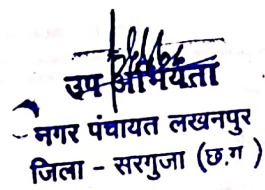 उप अभियंता
नगर पंचायत लखनपुर
जिला - सरगुजा (छ.ग)